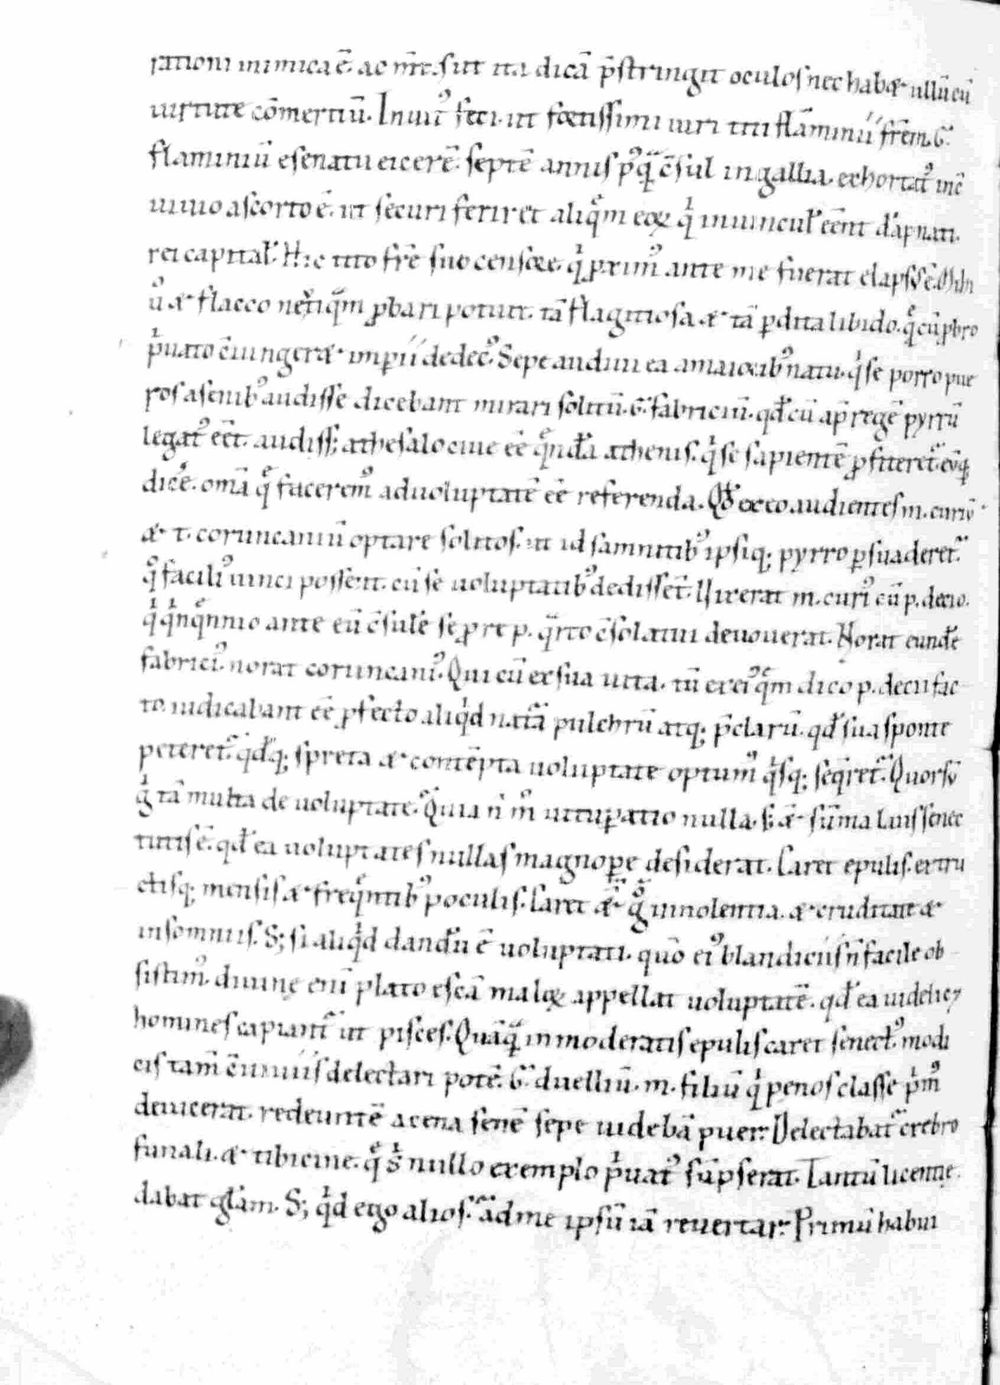 rationi inimica ē. ac m̄t. sut ita dicā p̄stringit oculos nec habæ ullū cū
uirtute cōmertiū. Inuit᷒ feci. ut fœtissimi uiri titi flāminii frēm. G̅.
flaminiū e senatu eicerē. septē annis p᷒q̄ c̄sul in gallia. exhortat᷒ inc̄
uiuio a scorto ē. ut securi feriret aliqͣm eoꝝ qͥ in uincul̄ eēnt dāpnati.
rei capital̄. Hic tito frē suo censore. qͥ proxim᷒ ante me fuerat elapsꝰ ē. Mihi
u᷒ æ flacco neꝗͣꝗͣm ꝓbari potuit. tā flagitiosa æ tā ꝑdita libido. q̄ cū ꝓbro
pͥuato c̄iungeræ imꝑii dedec᷒. Sepe audiui ea a maiorib᷒ natu. qͥ se porro pue
ros a senib᷒ audisse dicebant mirari solitū. G̅. fabriciū. qd̄ cū ap̄ regē pyrrū
legat᷒ eēt. audiss; a thesalo ciue eē qͣndā athenis. qͥ se sapientē ꝓfiteret᷑. eūq;
dicē. omā q̄ facerem᷒ ad uoluptatē eē referenda. Qd̄ ex eo audientes m. curiū
æ t. coruncaniū optare solitos. ut id samnitib᷒ ipsiq; pyrro ꝑsuaderet᷑.
qͦ facili᷒ uinci possent. cū se uoluptatib᷒ dedissēt. Uixerat m. curi᷒ cū p. decio.
qͥ qͥnqͣnnio ante eū c̄sulē se ꝓ re p. qͣrto c̄solatui deuouerat. Norat eundē
fabrici᷒. norat coruncani᷒. Qui cū ex sua uita. tū ex ei᷒ qͣm dico p. decii fac
to. iudicabant eē ꝓfecto aliqͥd natā pulchrū atq; p̄clarū. qd̄ sua sponte
peteret᷑. qd̄q; spreta æ contēpta uoluptate optum᷒ qͥsq; seq̄ret᷑. Quorsū
gͥ tā multa de uoluptate. Quia n̄ m̊ uituꝑatio nulla. s; æ sūma laus senec
tutis ē. qd̄ ea uoluptates nullas magnoꝑe desiderat. Caret epulis. extru
ctisq; mensis æ freqͣntib᷒ poculis. Caret ǣ gͦ uinolentia. æ cruditate æ
insomniis. S; si aliqͥd dandū ē uoluptati. quō ei᷒ blandiciis n̄ facile ob
sistim᷒. diuine eniˉ plato escā maloꝝ appellat uoluptatē. qd̄ ea uidelicꝫ
homines capiant᷑ ut pisces. Quāqͣ inmoderatis epulis caret senect᷒. modi
cis tam̄ c̄uiuiis delectari potē. G̅. duelliū. m. filiū qͥ penos classe pͥm᷒
deuicerat. redeuntē a cena senē sepe uidebā puer. Delectabat᷑ crebro
funali. æ tibicine. q̄ sͥ nullo exemplo pͥuat᷒ sūpserat. Tantū licentie
dabat glām. S; qͥd ego alios. ad me ipsū iā reuertar. Primū habui